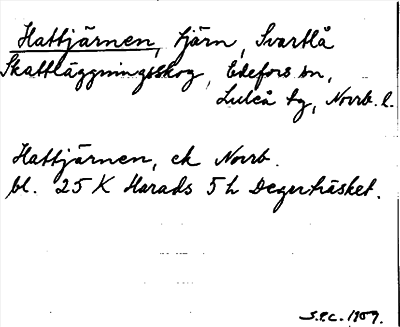 Hattjärnen, tjärn, Svartlå
Skattläggningsskog, Edefors sn,
Luleå tg, Norrb. l.
Hattjärnen, ek Norrb.
bl. 25 K Harads 5 h Degerträsket.
S.P.C. 1909.